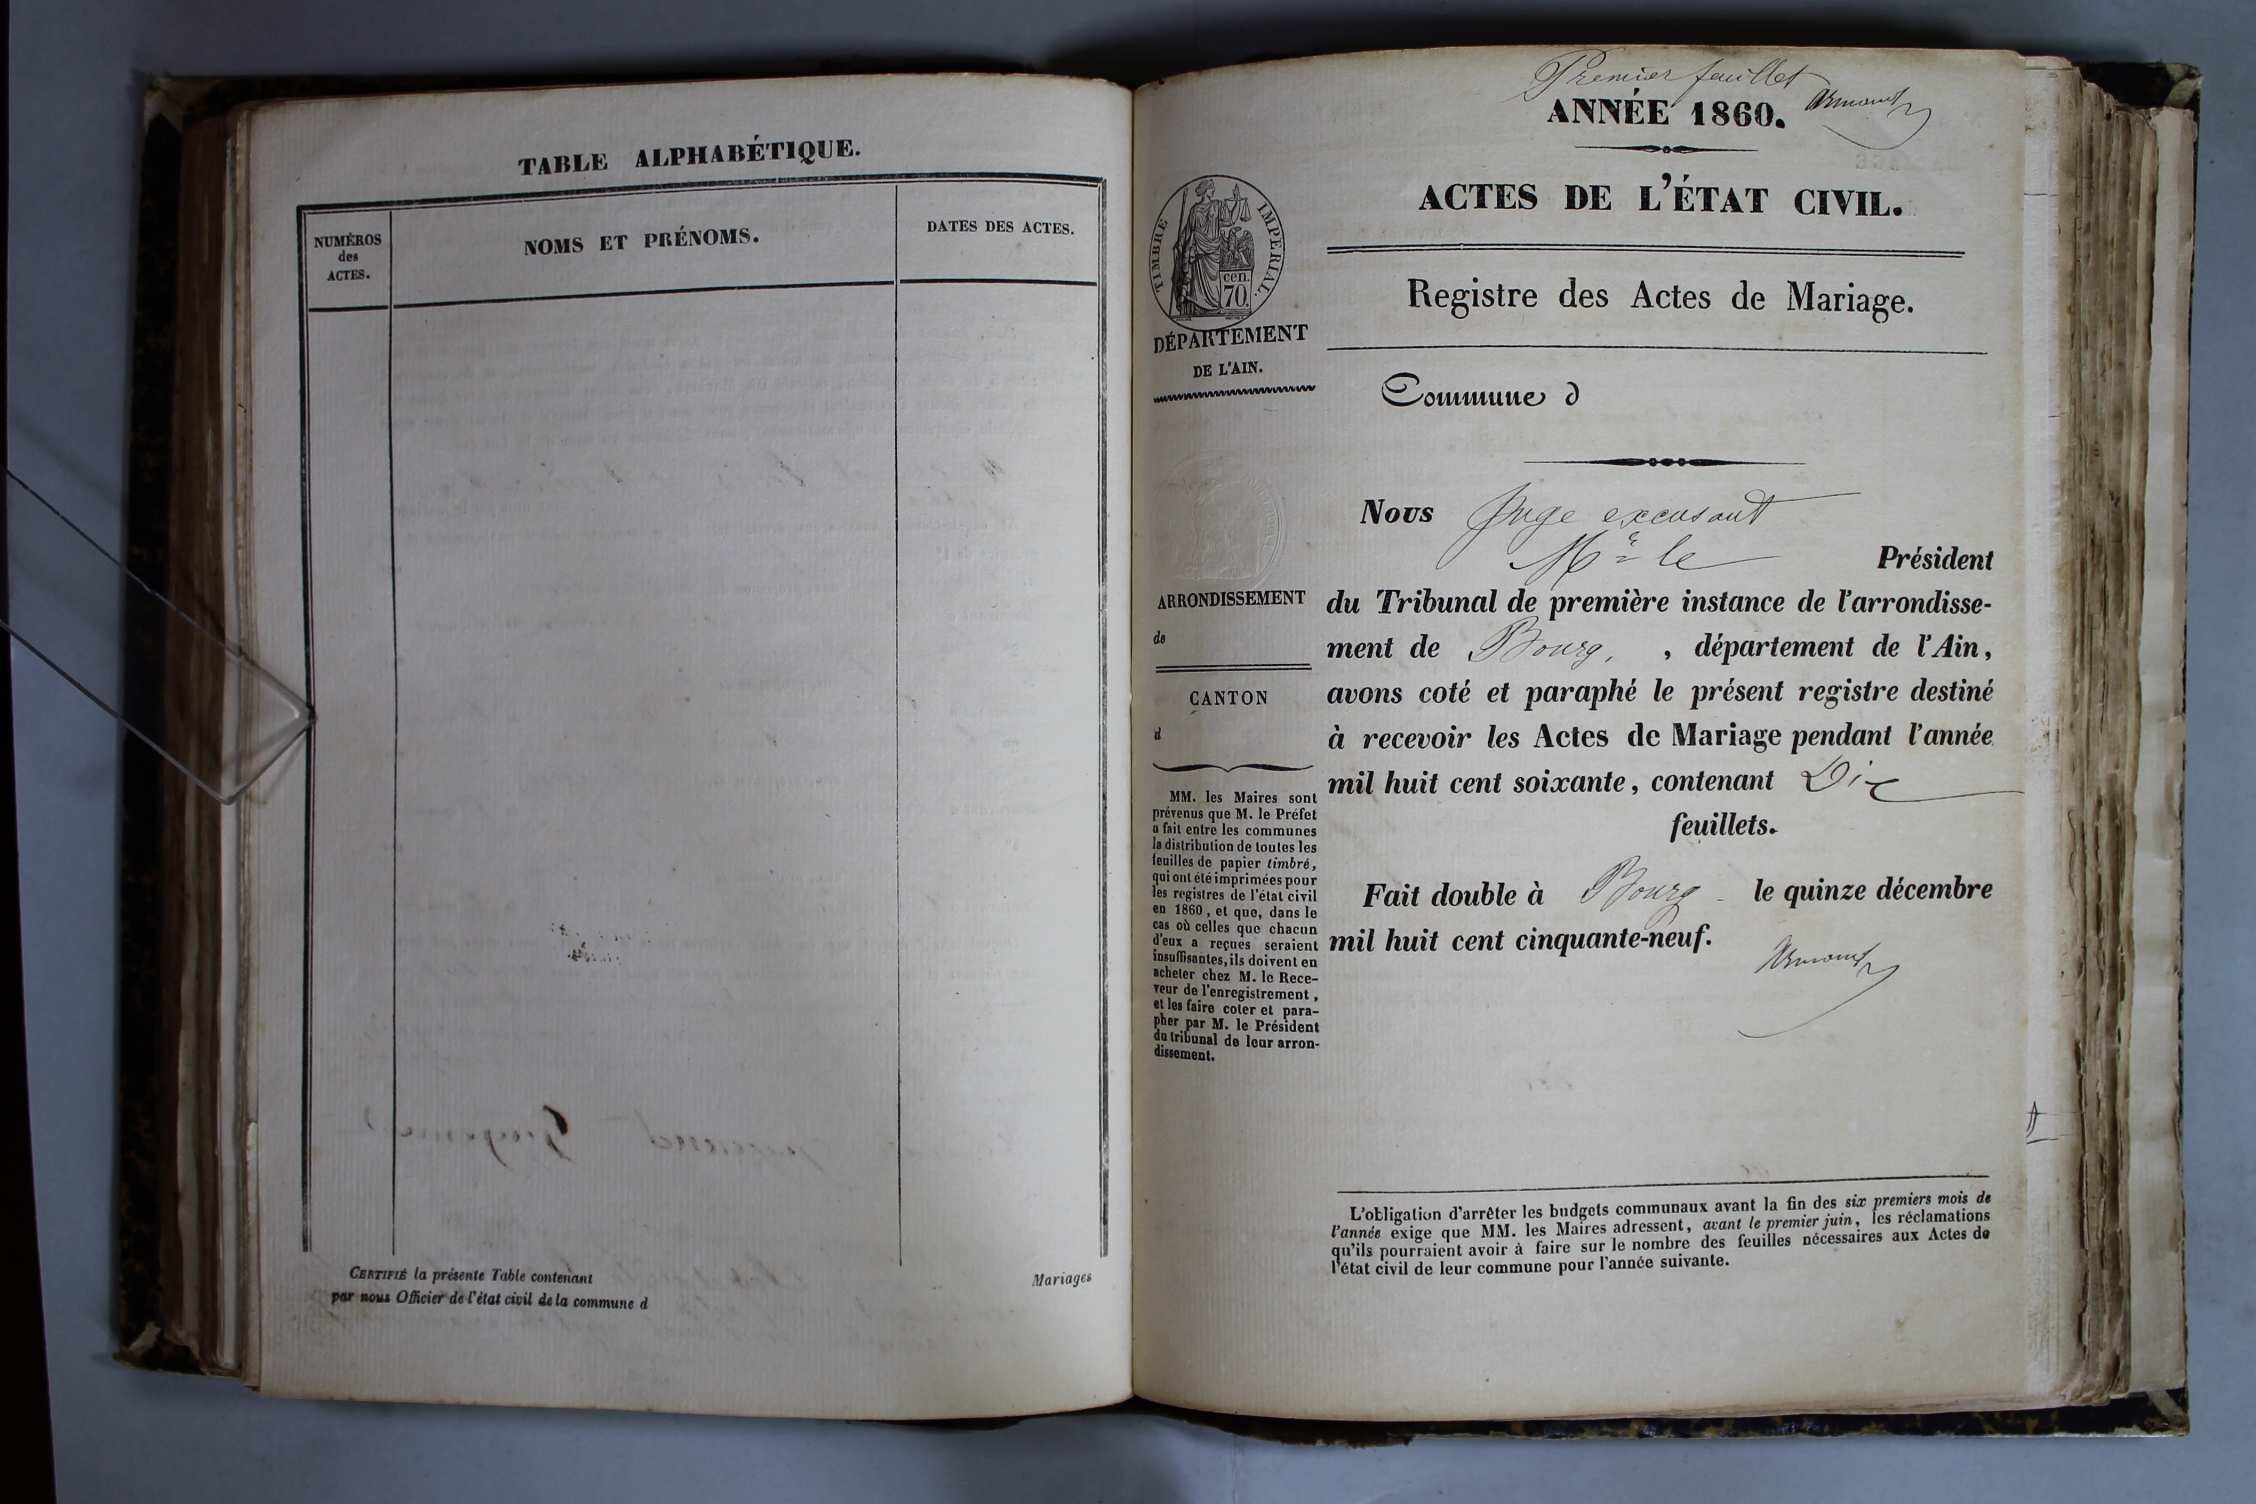 TABLE ALPHABÉTIQUE.
NUMÉROS
des
ACTES.
NOMS ET PRÉNOMS.
DATES DES ACTES.
CERTIFIÉ la présente Table contenant
par nous Officier de l'état civil de la commune d
Mariages
Premier feuillet
ANNÉE 1860.
ACTES DE L'ÉTAT CIVIL.
Registre des Actes de Mariage.
TIMBRE IMPERIAL.
cen.
70.
DÉPARTEMENT
DE L'AIN.
Commune d
ARRONDISSEMENT
de
CANTON
d
MM. les Maires sont
prévenus que M. le Préfet
a fait entre les communes
la distribution de toutes les
feuilles de papier timbré,
qui ont été imprimées pour
les registres de l'état civil
en 1860, et que, dans le
cas où celles que chacun
d'eux a reçues seraient
insuffisantes, ils doivent en
acheter chez M. le Rece-
veur de l'enregistrement,
et les faire coter et para-
pher par M. le Président
du tribunal de leur arron-
dissement.
Nous Juge excusant
Mr le Président
du Tribunal de première instance de l'arrondisse-
ment de Bourg, , département de l'Ain,
avons coté et paraphé le présent registre destiné
à recevoir les Actes de Mariage pendant l'année
mil huit cent soixante, contenant Dix
feuillets.
Fait double à Bourg le quinze décembre
mil huit cent cinquante-neuf.
L'obligation d'arrêter les budgets communaux avant la fin des six premiers mois de
l'année exige que MM. les Maires adressent, avant le premier juin, les réclamations
qu'ils pourraient avoir à faire sur le nombre des feuilles nécessaires aux Actes de
l'état civil de leur commune pour l'année suivante.